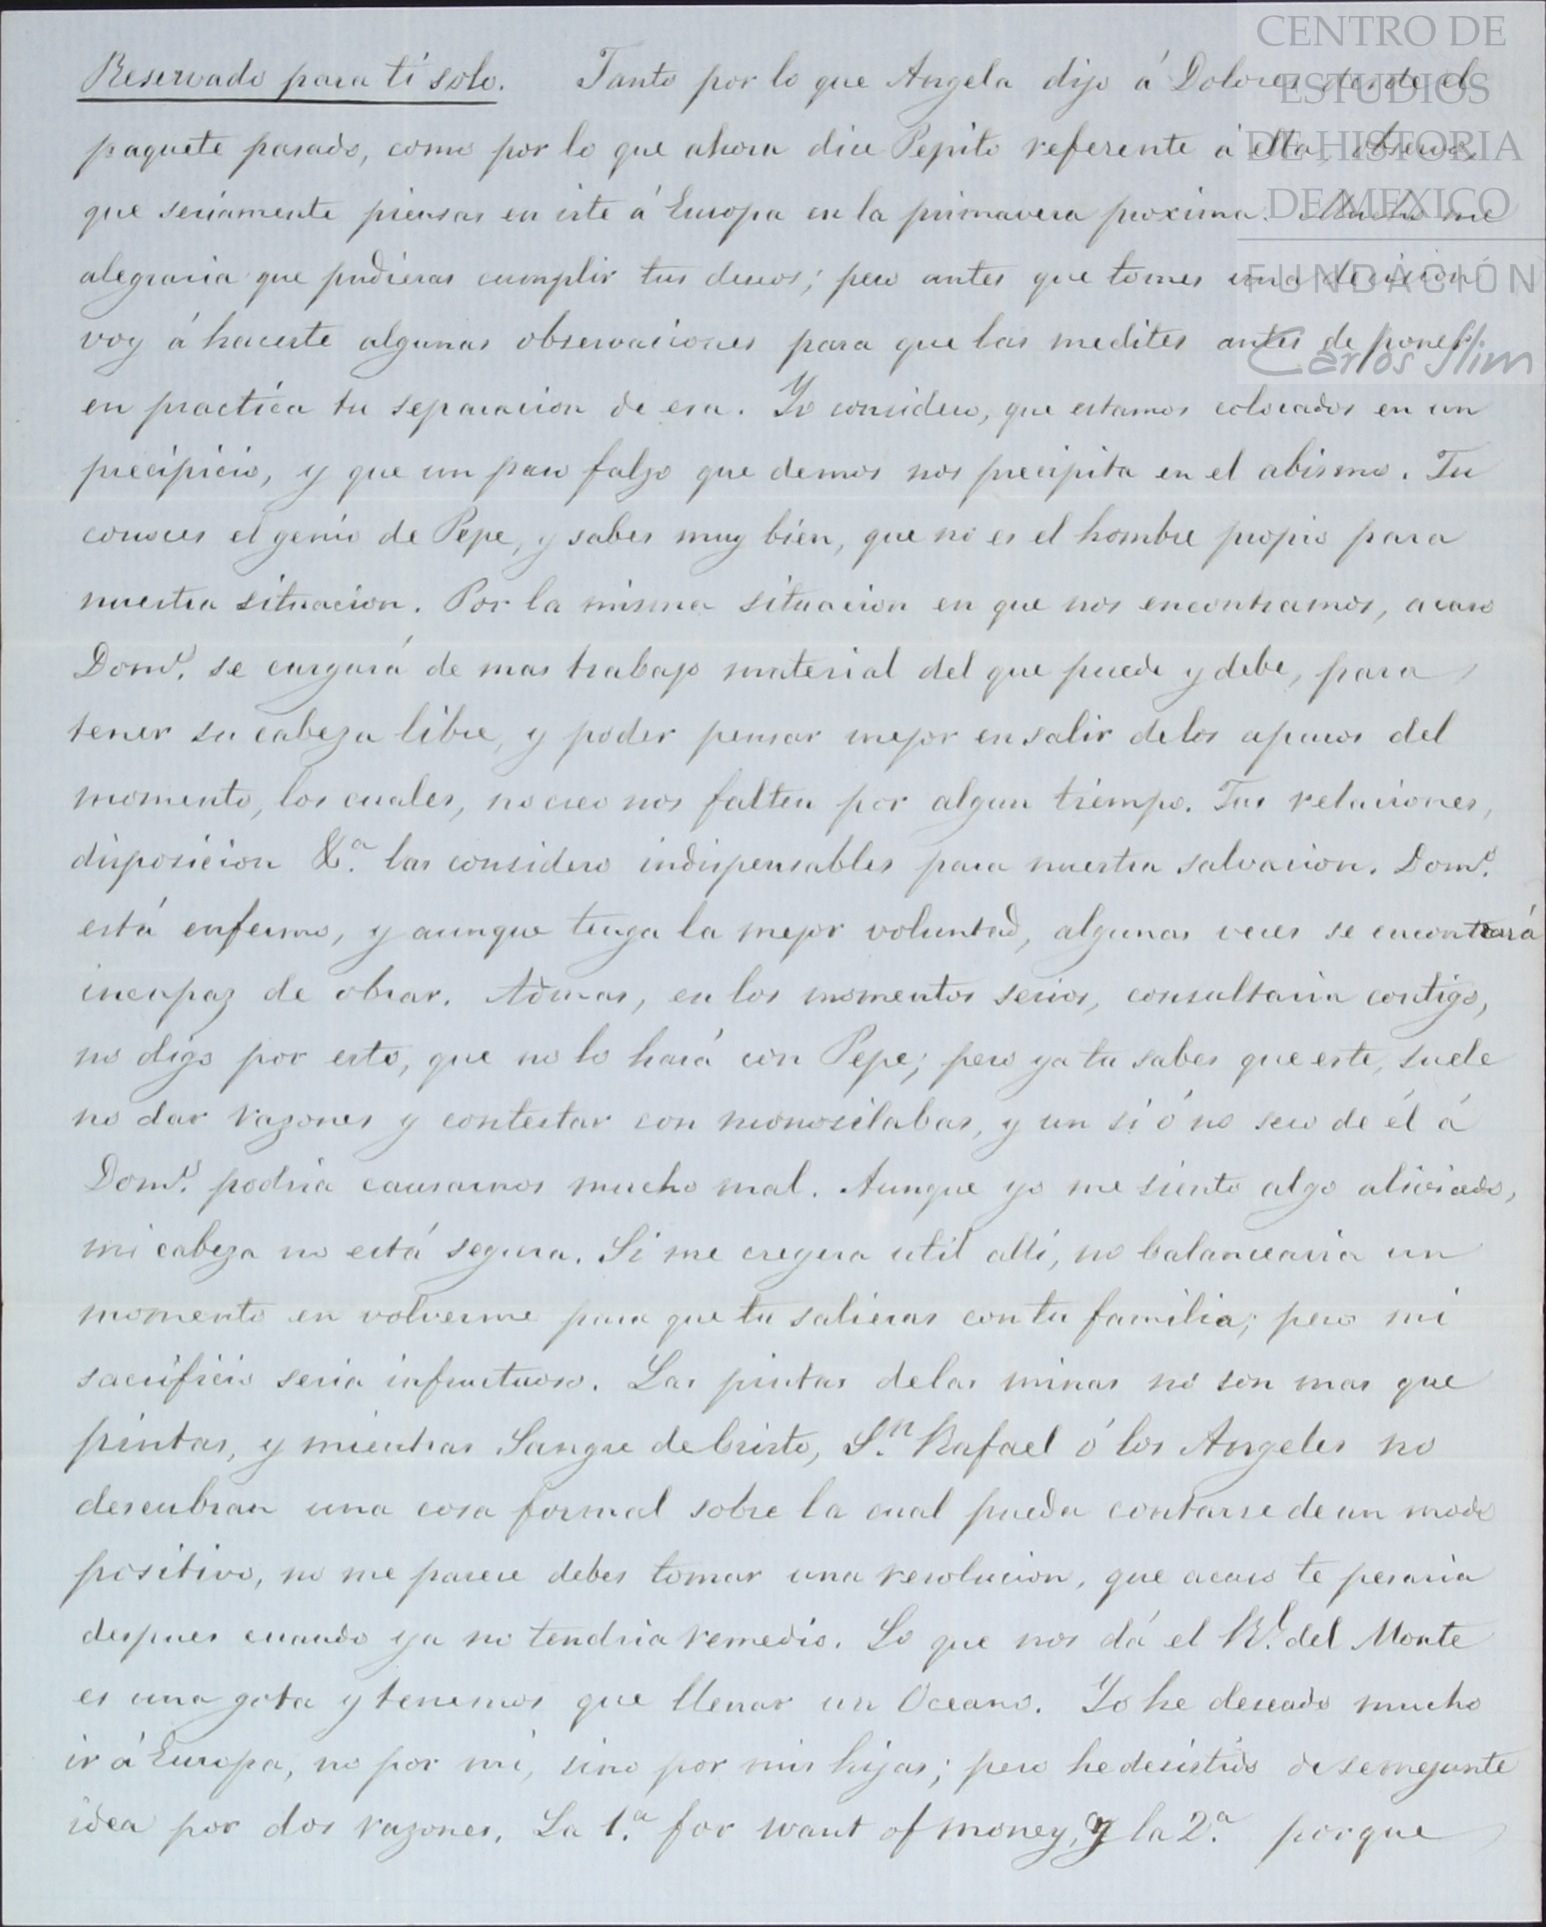 CENTRO DE
ESTUDIOS
DE HISTORIA
DE MEXICO
FUNDACIÓN
Carlos Slim
Reservado para ti solo. Tanto por lo que Angela dijo á Dolores desde el
paquete pasado, como por lo que ahora dice Pepito referente á ella, observo
que seriamente piensas en irte á Europa en la primavera proxima. Mucho me
alegraria que pudieras cumplir tus deseos; pero antes que tomes una decision
voy á hacerte algunas observaciones para que las medites antes de poner
en practica tu separacion de esa. Yo considero, que estamos colocados en un
precipicio, y que un paso falzo que demos nos precipita en el abismo. Tu
conoces el genio de Pepe, y sabes muy bien, que no es el hombre propio para
nuestra situacion. Por la misma situacion en que nos encontramos, acaso
Domo. se cargará de mas trabajo material del que puede y debe, para
tener su cabeza libre, y poder pensar mejor en salir de los apuros del
momento, los cuales, no creo nos falten por algun tiempo. Tus relaciones,
disposicion &.a las considero indispensables para nuestra salvacion. Domo.
está enfermo, y aunque tenga la mejor voluntad, algunas veces se encontrará
incapaz de obrar. Ademas, en los momentos serios, consultaria contigo,
no digo por esto, que no lo hará con Pepe; pero ya tu sabes que este, suele
no dar razones y contestar con monosilabas, y un si ó no seco de él á
Domo. podria causarnos mucho mal. Aunque yo me siento algo aliviado,
mi cabeza no está segura. Si me creyera util allí, no balancearia un
momento en volverme para que tu salieras con tu familia; pero mi
sacrificio seria infructuoso. Las pintas de las minas no son mas que
pintas, y mientras Sangre de Cristo, S.n Rafael ó los Angeles no
descubran una cosa formal sobre la cual pueda contarse de un modo
positivo, no me parece debes tomar una resolucion, que acaso te pesaria
despues cuando ya no tendria remedio. Lo que nos dá el R.l del Monte
es una gota y tenemos que llenar un Oceano. Yo he deseado mucho
ir á Europa, no por mi, sino por mis hijas; pero he desistido de semejante
idea por dos razones. La 1.a for want of money, y la 2.a porque